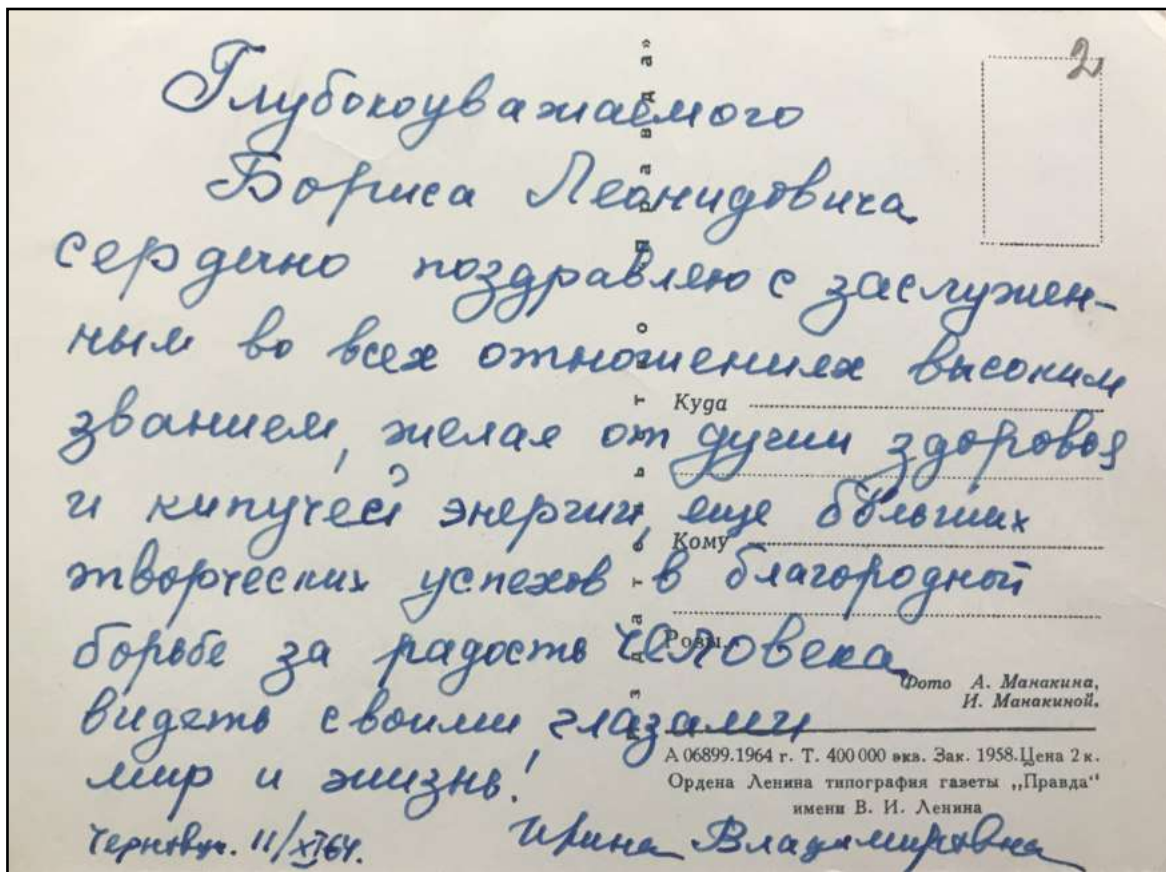 2
Глубокоуважаемого
Бориса Леонидовича
сердечно поздравляю с заслужен-
ным во всех отношениях высоким
званием, желая от души здоровья
и кипучей энергии, еще больших
творческих успехов в благородной
борьбе за радость человека
видеть своими глазами
мир и жизнь!
Черновцы. 11/XI 64.
Ирина Владимировна
Издательство «Правда»
Куда
Кому
Розы.
Фото А. Манакина,
И. Манакиной.
А 06899.1964 г. Т. 400 000 экз. Зак. 1958. Цена 2 к.
Ордена Ленина типография газеты „Правда“
имени В. И. Ленина